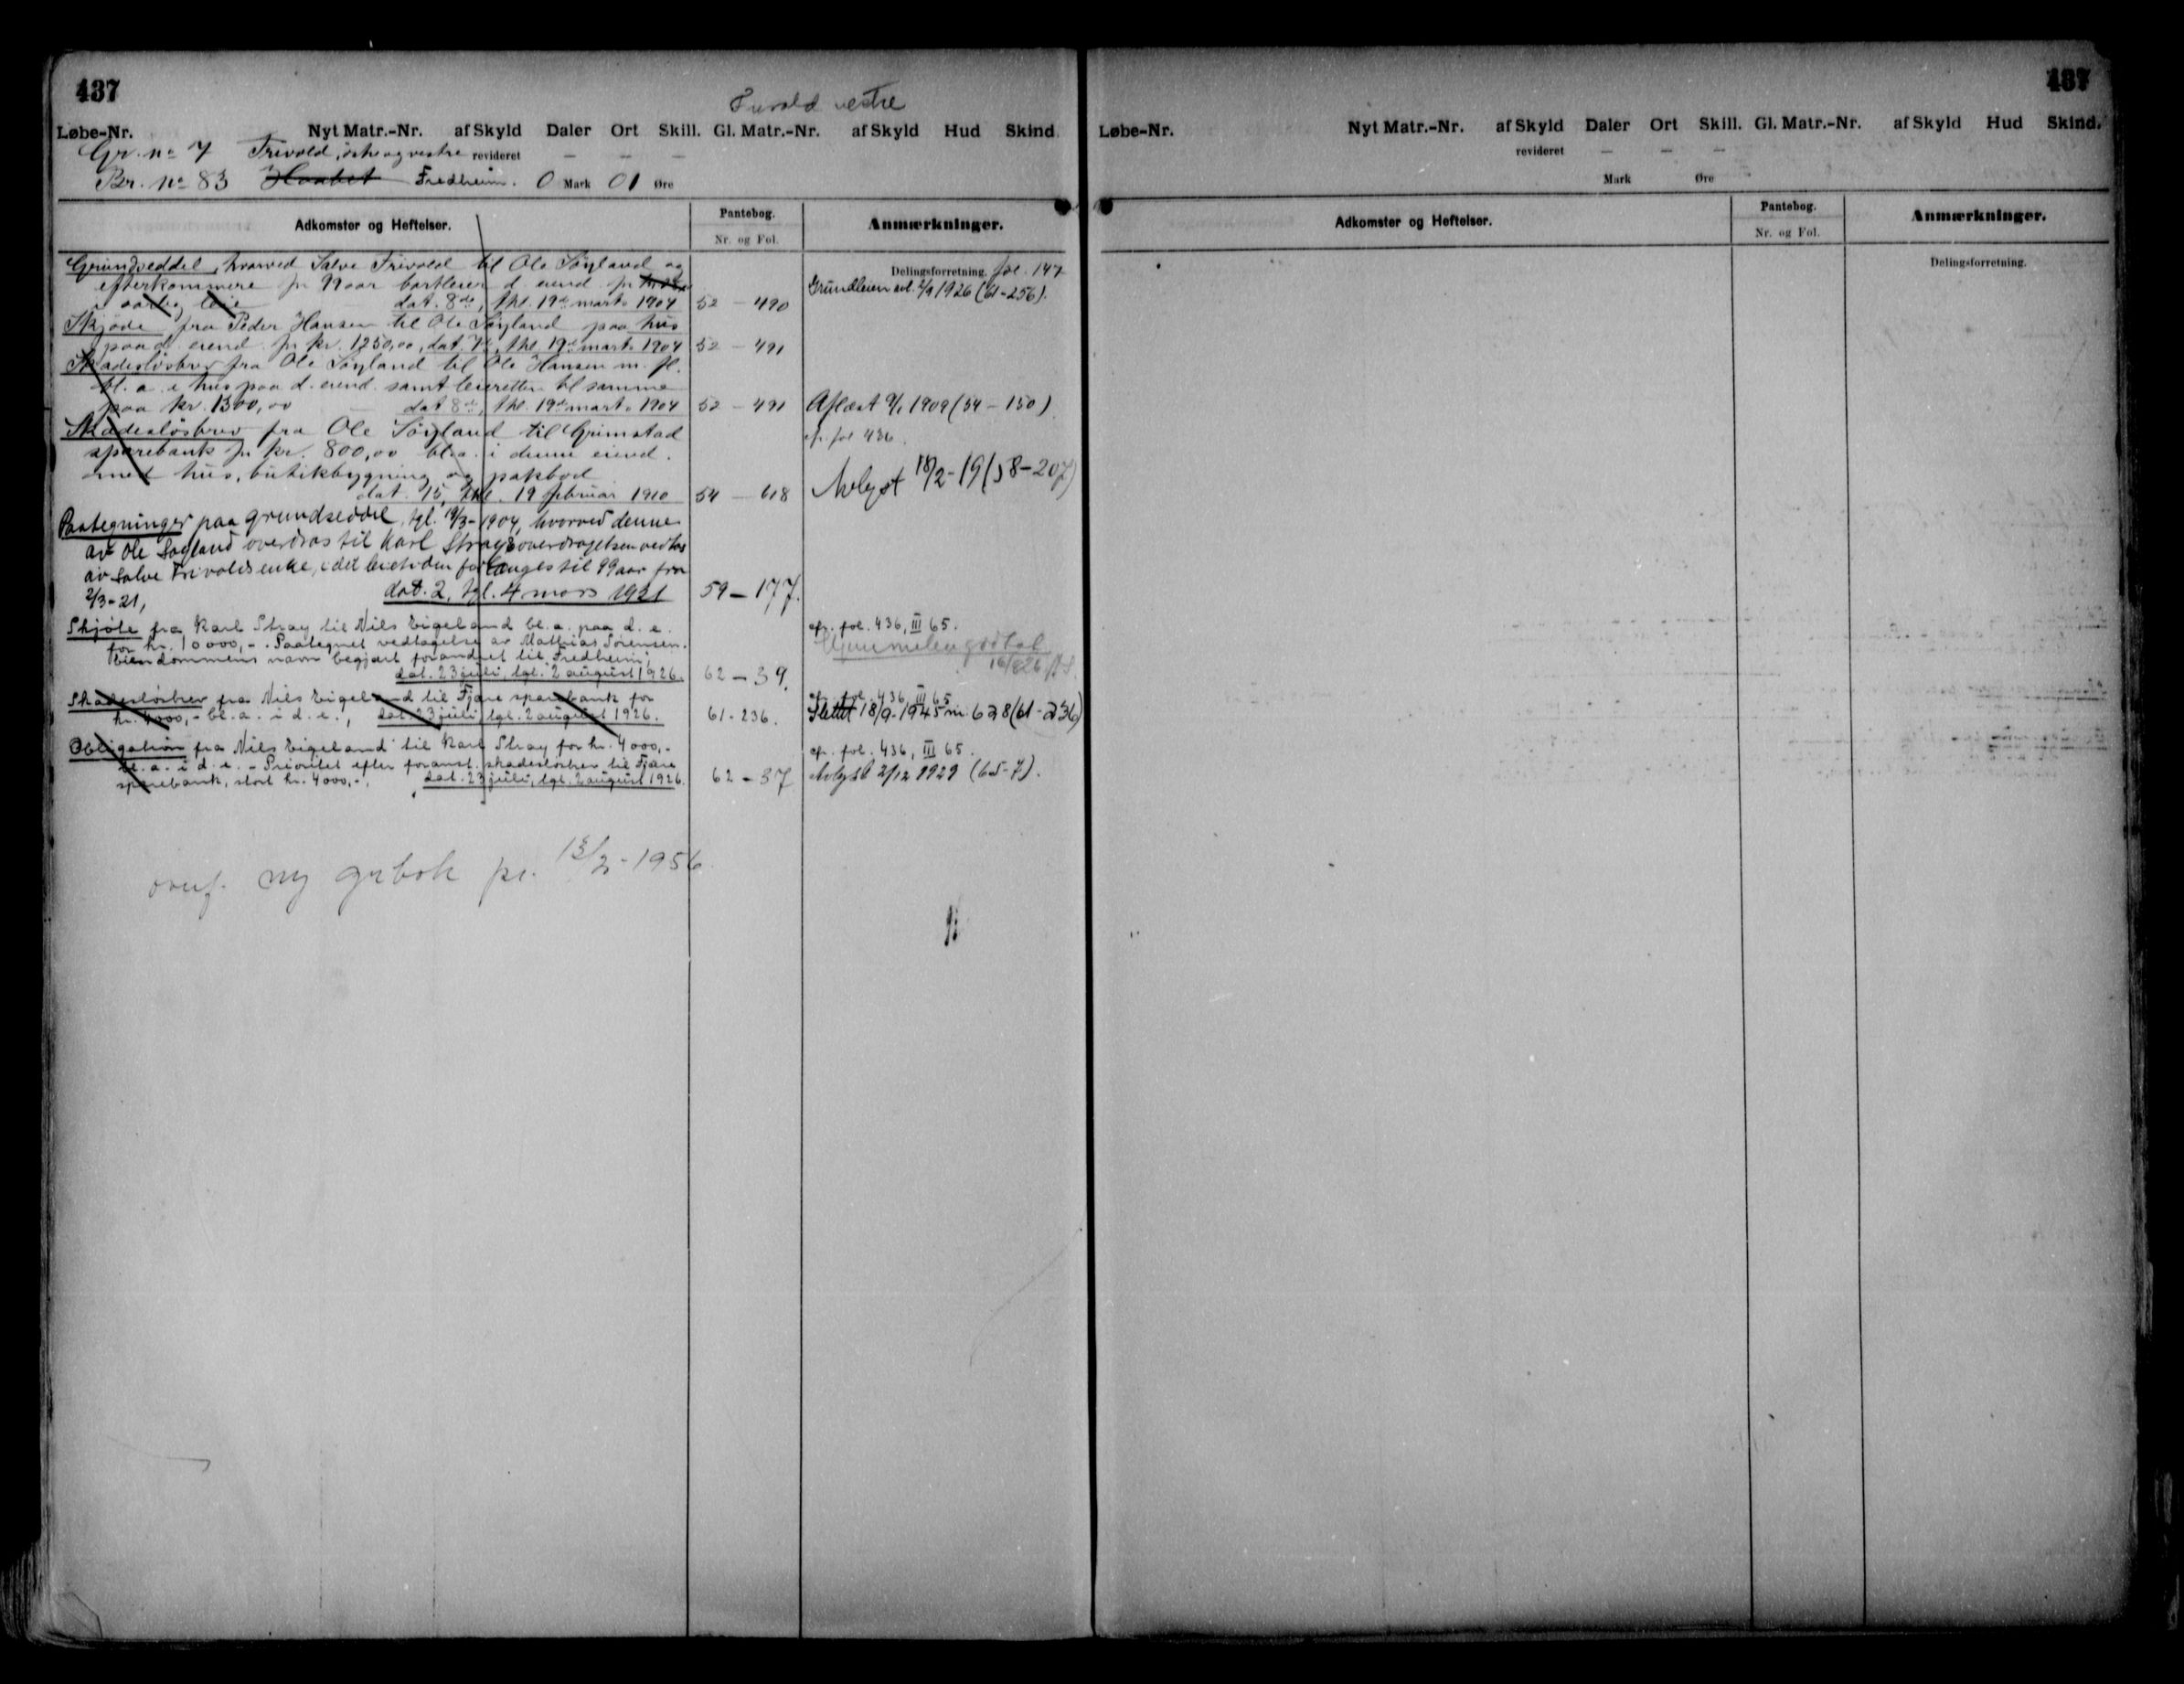 437
Frivold vestre
Løbe-Nr. Nyt Matr.-Nr. af Skyld Daler Ort Skill. Gl. Matr.-Nr. af Skyld Hud Skind.
Gr. no 7 Frivold, østre og vestre revideret — — —
Br. no 83 Haabet Fredheim. 0 Mark 01 Øre
Adkomster og Heftelser. Pantebog. Anmærkninger.
Nr. og Fol.
Delingsforretning. fol. 147
Grundseddel, hvorved Salve Frivold til Ole Søyland og
efterkommere for 99 aar bortleier d. eiend. for
i aarlig leie dat. 8de, thl. 19de marts 1904 52 — 490
Grundleien avl. 2/9 1926 (61-256).
Skjøde fra Peder Hansen til Ole Søyland paa hus
paa d. eiend. for kr. 1250,00, dat. 7de, thl. 19de marts 1904 52 — 491
Skadesløsbrev fra Ole Søyland til Ole Hansen m. fl.
bl. a. i hus paa d. eiend. samt leieretten til samme
paa kr. 1300,00 dat. 8de, thl. 19de marts 1904 52 — 491 Aflæst 9/1 1909 (54 — 150)
Skadesløsbrev fra Ole Søyland til Grimstad cfr. fol. 436.
sparebank for kr. 800,00 bl. a. i denne eiend.
med hus, butikbygning og pakbod
dat. 15, thl. 19 februar 1910 54 — 618 Avlyst 18/2-19 (58-207)
Paategninger paa grundseddel, tgl. 19/3-1904, hvorved denne
av Ole Søyland overdras til Karl Stray, overdragelsen vedtas
av Salve Frivolds enke, idet leietiden forlænges til 99 aar fra
2/3-21, dat. 2, tgl. 4 mars 1921 59 — 177.
Skjøte fra Karl Stray til Nils Eigeland bl. a. paa d. e. cfr. fol. 436, III 65.
for kr. 10000,-. Paategnet vedtagelse av Mathias Sørensen.
Eiendommens navn begjært forandret til "Fredheim",
dat. 23 juli, tgl. 2 august 1926. 62 — 39.
Skadesløsbrev fra Nils Eigeland til Fjære sparebank for cfr. fol. 436, III 65
kr. 4000,- bl. a. i d. e., dat. 23 juli, tgl. 2 august 1926. 61-236. Slettet 18/9-1945 nr. 628 (61-236)
Obligation fra Nils Eigeland til Karl Stray for kr. 4000,- cfr. fol. 436, III 65.
bl. a. i d. e. - Prioritet efter foranst. skadesløsbrev til Fjære
sparebank, stort kr. 4000,-, dat. 23 juli, tgl. 2 august 1926. 62 — 37 Avlyst 2/12 1929 (65-7).
overf. ny grbok pr. 13/2-1956.
437
Løbe-Nr. Nyt Matr.-Nr. af Skyld Daler Ort Skill. Gl. Matr.-Nr. af Skyld Hud Skind.
revideret — — —
Mark Øre
Adkomster og Heftelser. Pantebog. Anmærkninger.
Nr. og Fol.
Delingsforretning.